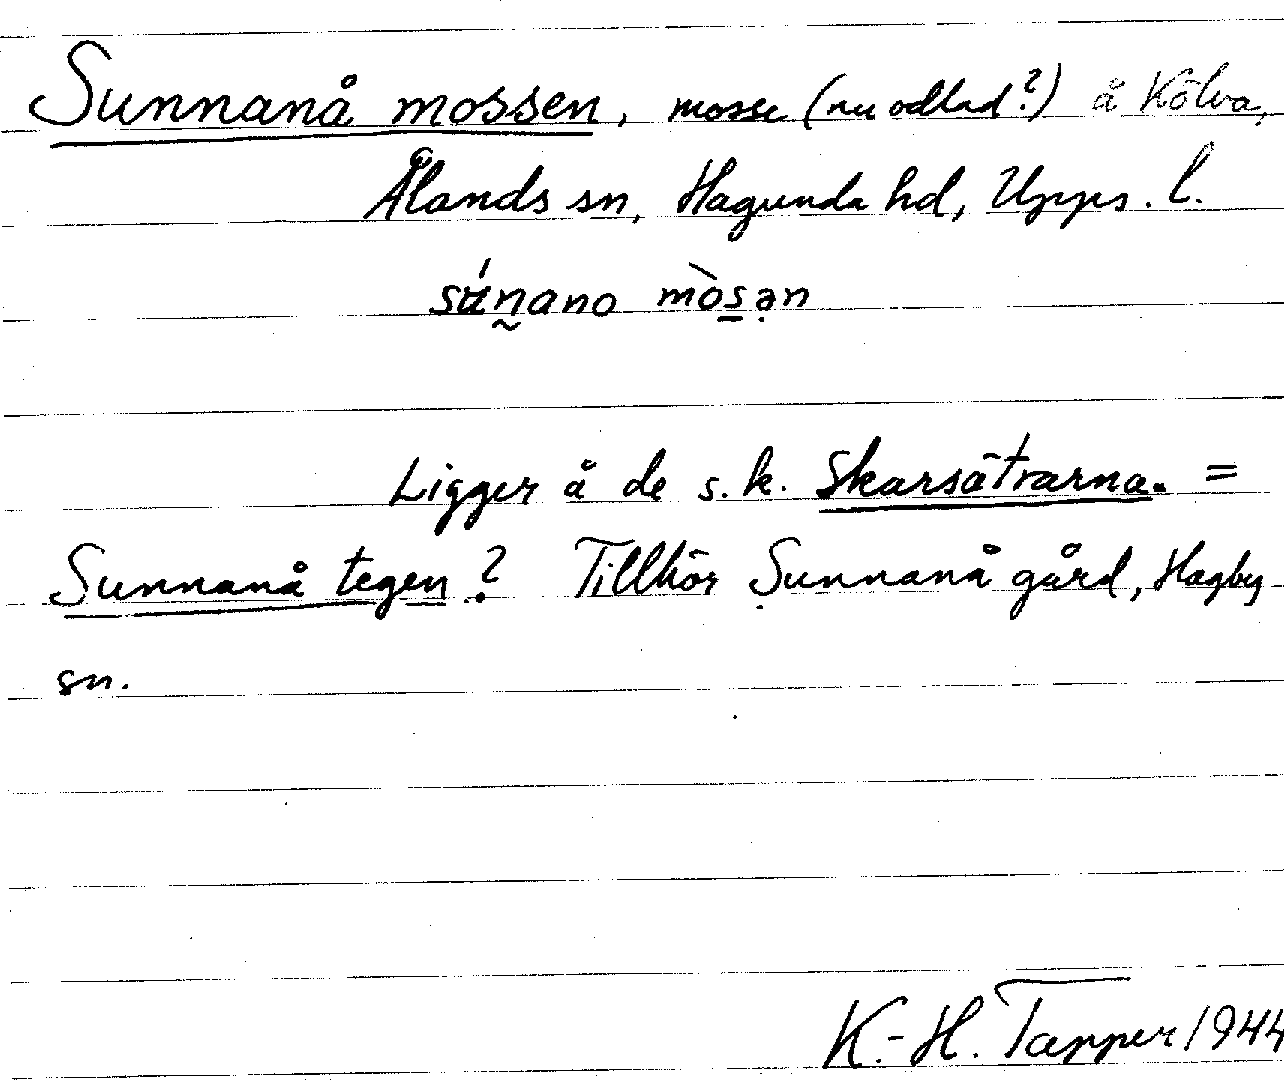 Sunnanå mossen, mosse (nu odlad?) å Kölva,
Ålands sn, Hagunda hd, Upps. l.
Ligger å de s.k. Skarsätrarna. =
Sunnanå tegen? Tillhör Sunnanå gård, Hagby
sn.
K.-H. Tapper 1944